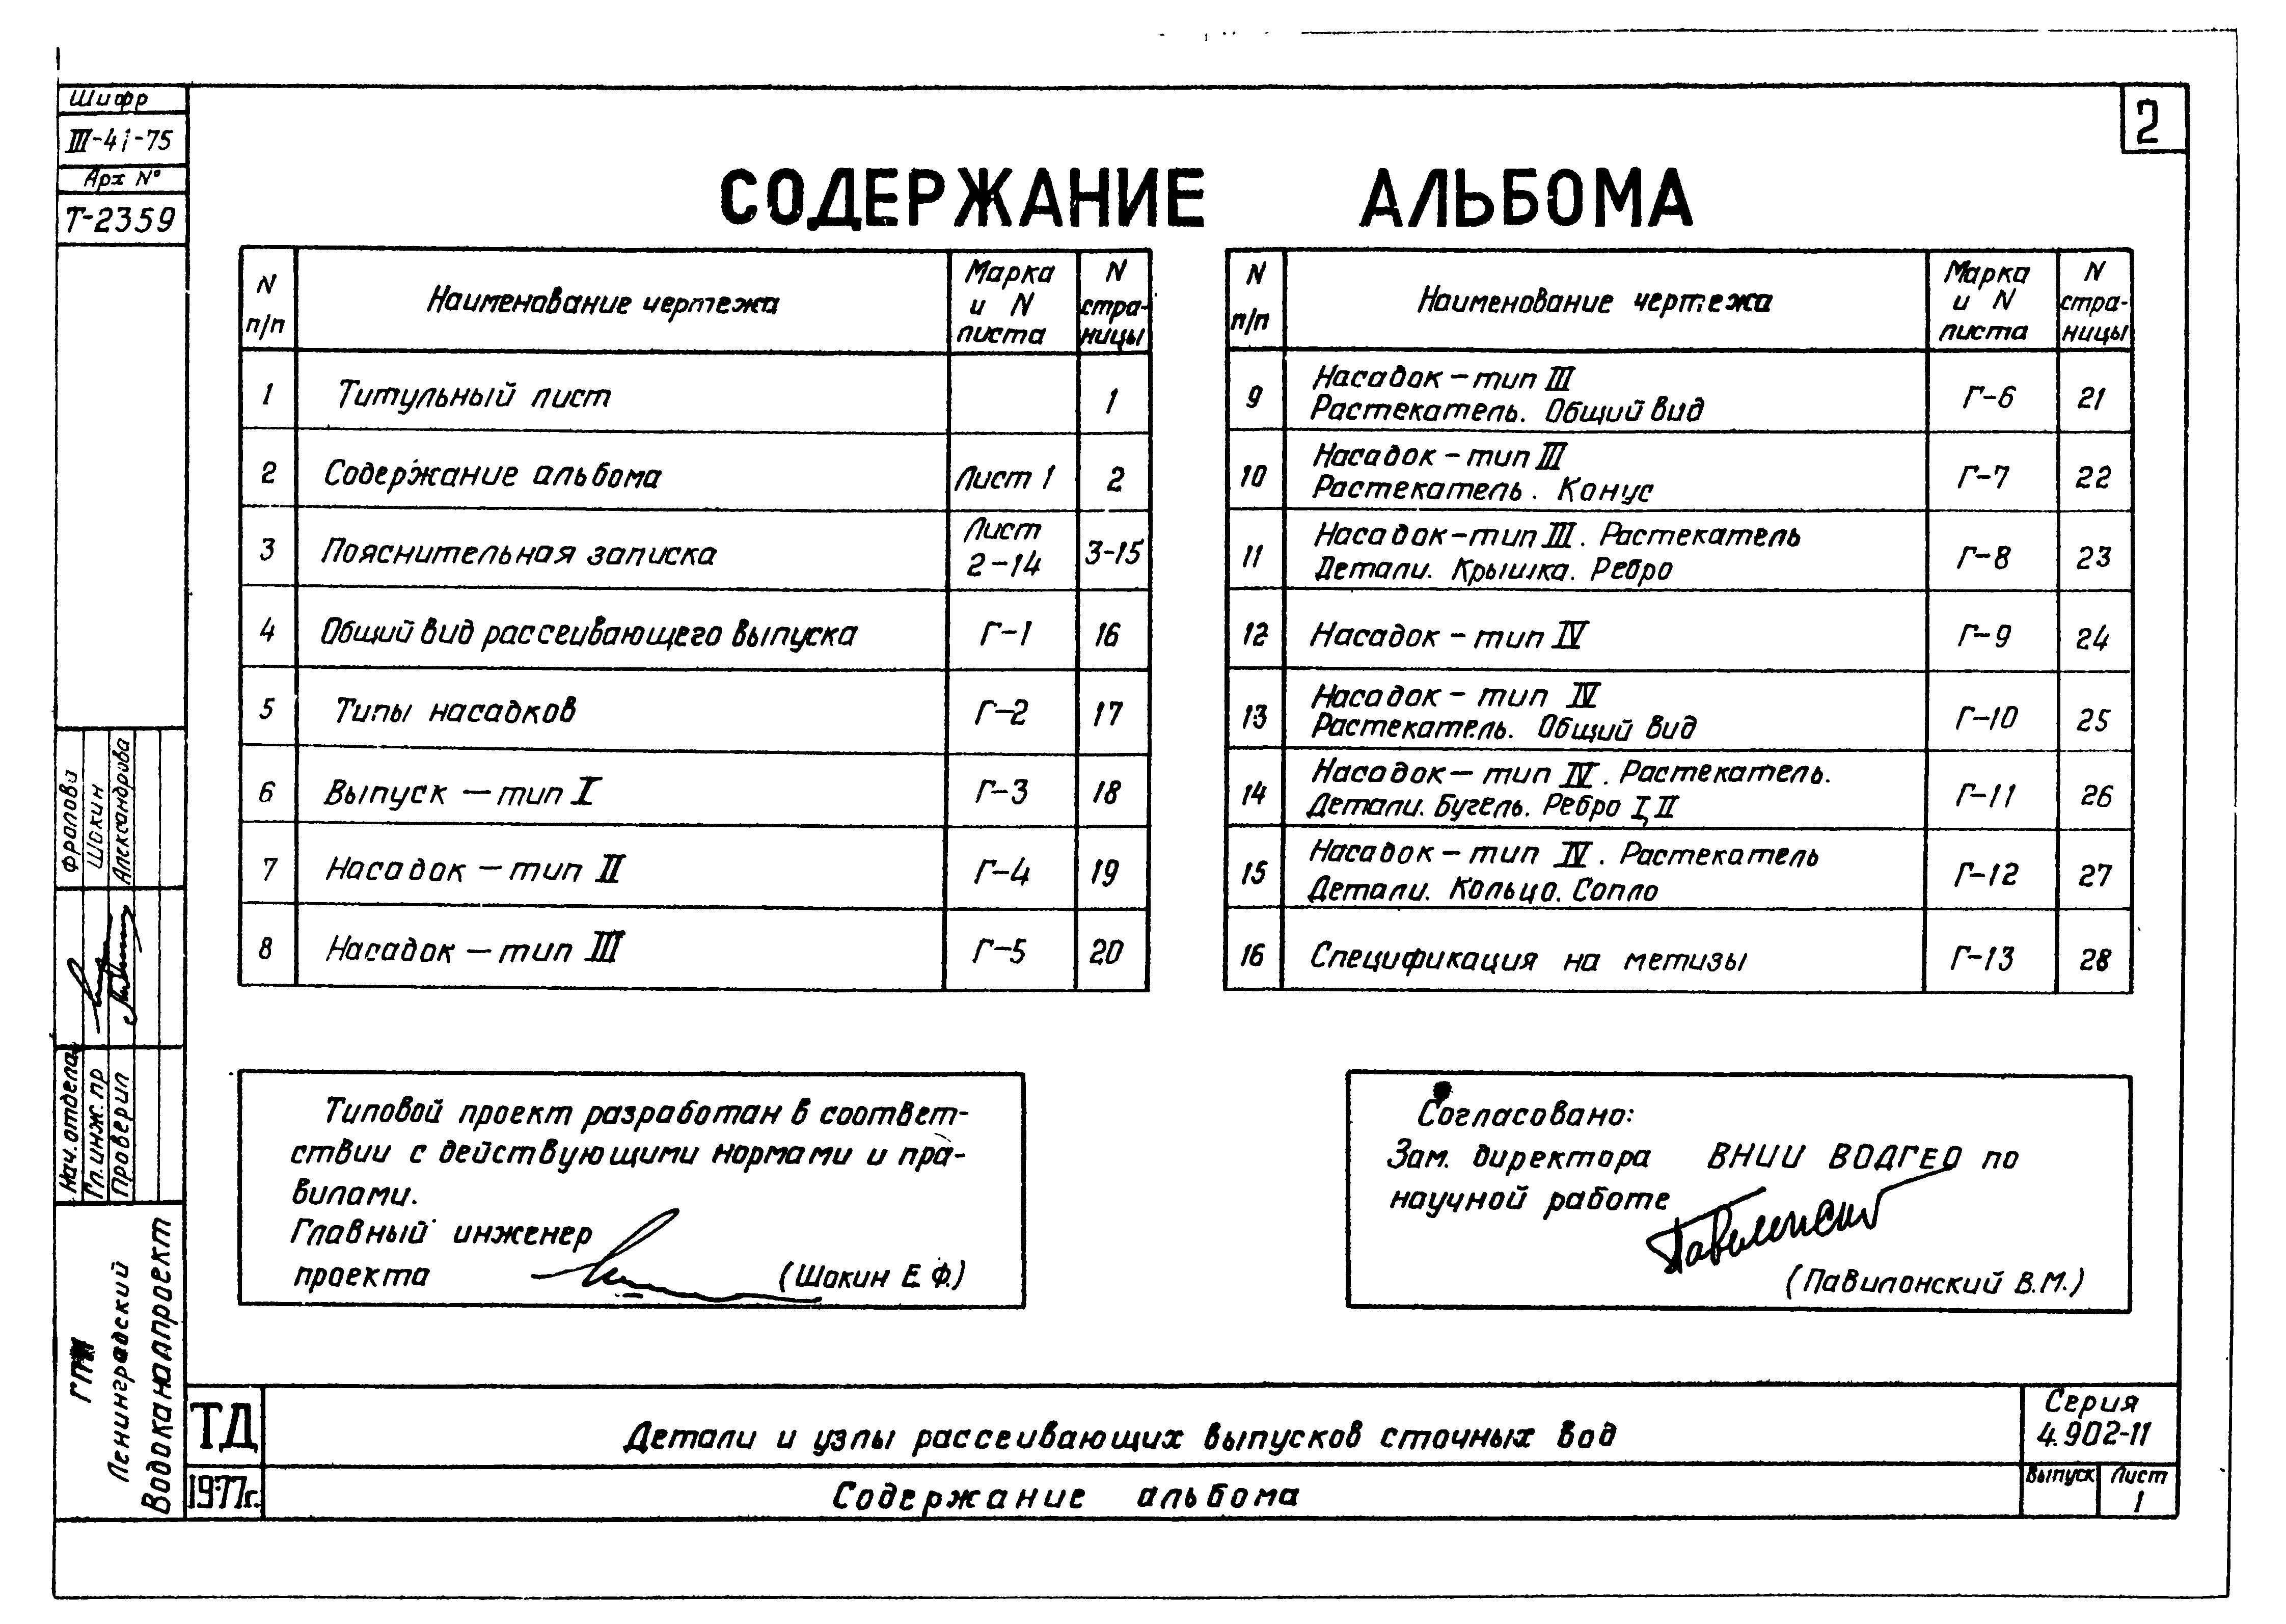 Шифр
III-41-75
Арх N°
Т-2359
2
СОДЕРЖАНИЕ АЛЬБОМА
N п/п
Наименование чертежа
Марка и N листа
N стра-
ницы
1 Титульный лист 1
2 Содержание альбома Лист 1 2
3 Пояснительная записка Лист 2-14 3-15
4 Общий вид рассеивающего выпуска Г-1 16
5 Типы насадков Г-2 17
6 Выпуск — тип I Г-3 18
7 Насадок — тип II Г-4 19
8 Насадок — тип III Г-5 20
N п/п
Наименование чертежа
Марка и N листа
N стра-
ницы
9 Насадок - тип III
Растекатель. Общий вид Г-6 21
10 Насадок - тип III
Растекатель. Конус Г-7 22
11 Насадок-тип III. Растекатель
Детали. Крышка. Ребро Г-8 23
12 Насадок - тип IV Г-9 24
13 Насадок - тип IV
Растекатель. Общий вид Г-10 25
14 Насадок — тип IV. Растекатель.
Детали. Бугель. Ребро I, II Г-11 26
15 Насадок - тип IV. Растекатель
Детали. Кольцо. Сопло Г-12 27
16 Спецификация на метизы Г-13 28
Типовой проект разработан в соответ-
ствии с действующими нормами и пра-
вилами.
Главный инженер
проекта (Шокин Е.Ф.)
Согласовано:
Зам. директора ВНИИ ВОДГЕО по
научной работе
(Павилонский В.М.)
Нач. отдела
Гл. инж. пр Шокин
Проверил Александрова
Ленинградский
Водоканалпроект
ТД
1977г.
Детали и узлы рассеивающих выпусков сточных вод
Содержание альбома
Серия
4.902-11
Выпуск Лист
1